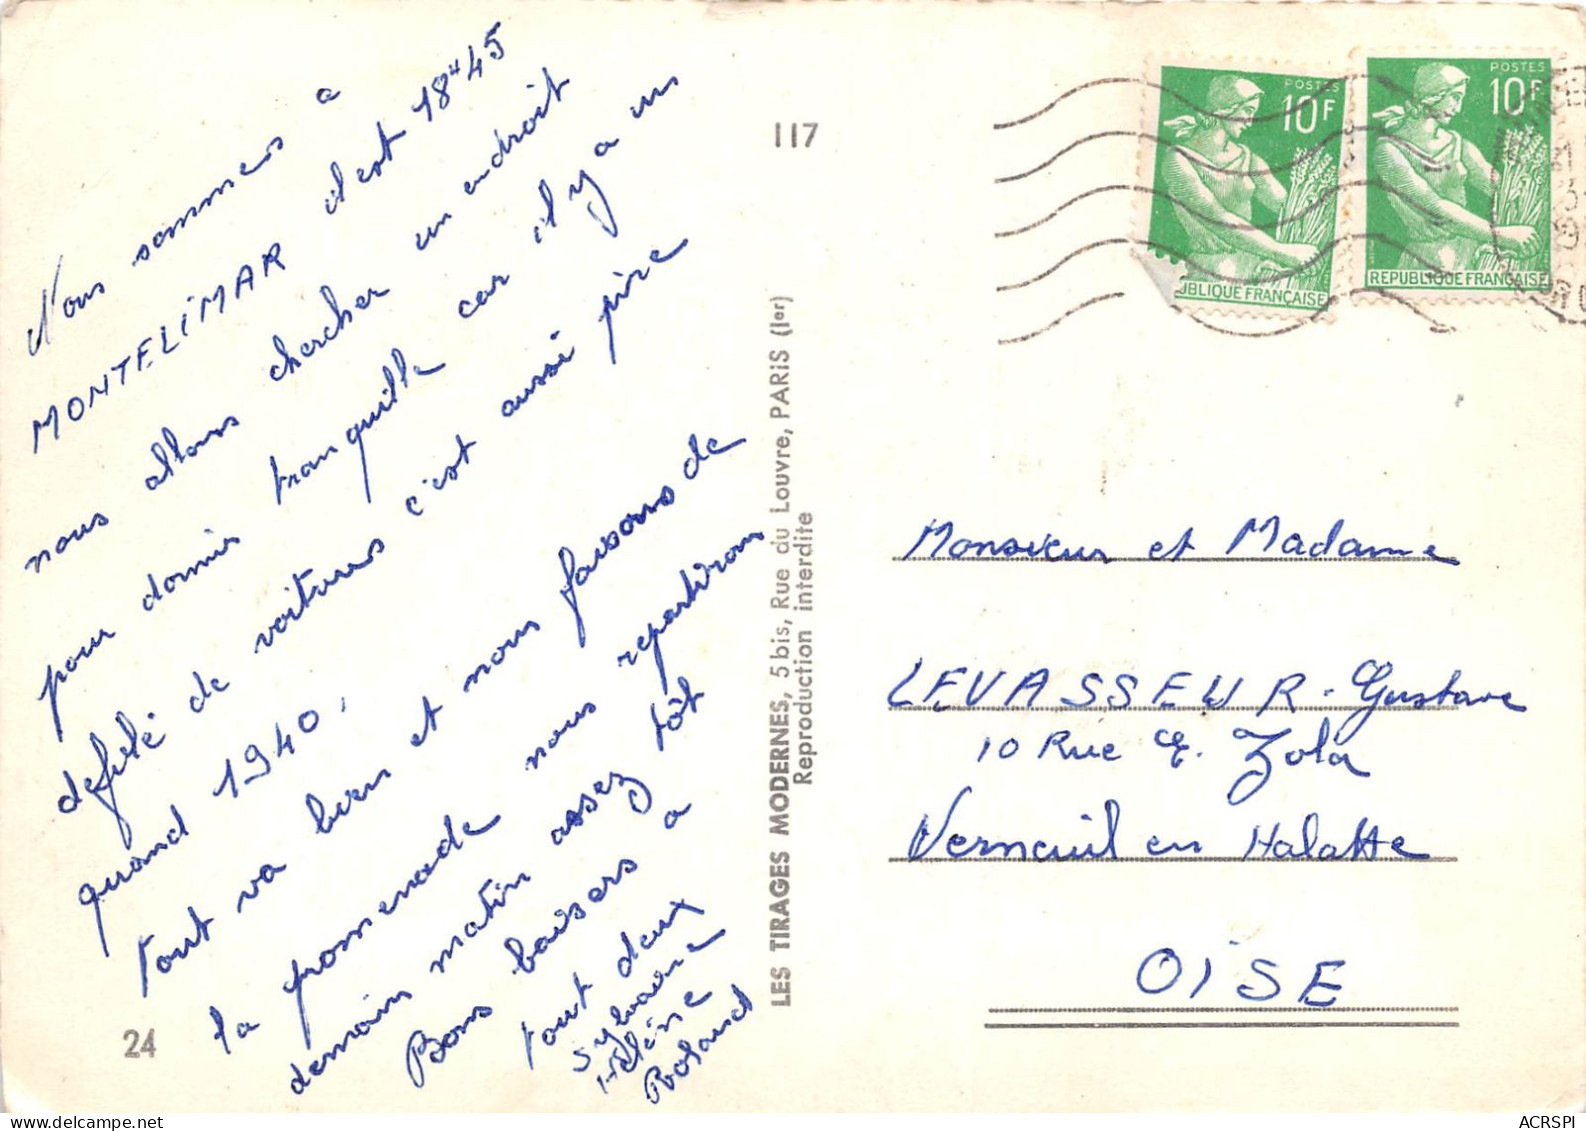 Nous sommes à
MONTELIMAR il est 18H45
nous allons chercher un endroit
pour dormir tranquille car il y a un
défilé de voitures c'est aussi pire
quand 1940,
tout va bien et nous faisons de
la promenade nous repartirons
demain matin assez tôt
Bons baisers a
tout deux
Sylvaine
Hélène
Roland
24
117
LES TIRAGES MODERNES, 5 bis, Rue du Louvre, PARIS (Ier)
Reproduction interdite
POSTES
10F
UBLIQUE FRANÇAISE
POSTES
10F
REPUBLIQUE FRANÇAISE
Monsieur et Madame
LEVASSEUR. Gustave
10 Rue E. Zola
Verneuil en Halatte
OISE
ACRSPI